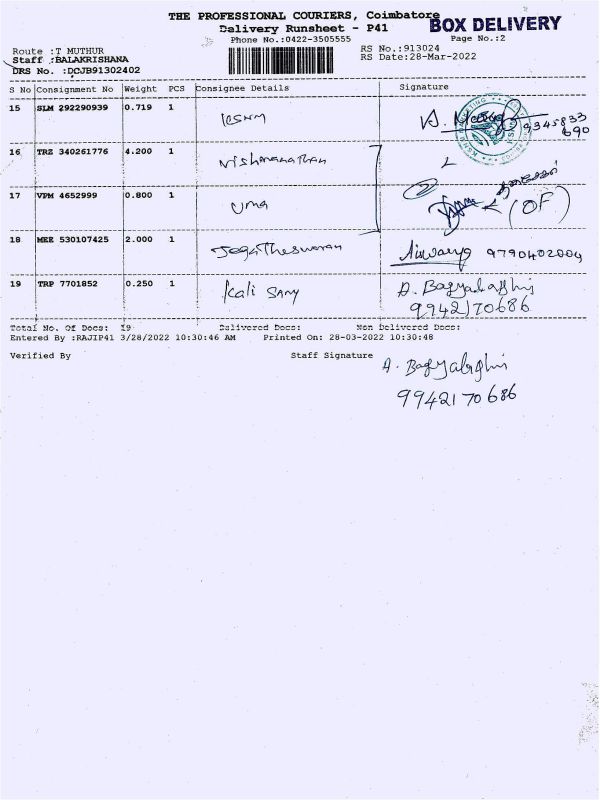 THE PROFESSIONAL COURIERS, Coimbatore
BOX DELIVERY
Delivery Runsheet - P41
Phone No.:0422-3505555
Page No.:2
Route :T MUTHUR
RS No.:913024
Staff :BALAKRISHANA
RS Date:28-Mar-2022
DRS No. :DCJB91302402
S No Consignment No Weight PCS Consignee Details Signature
15 SLM 292290939 0.719 1 KSNM
9345833
690
16 TRZ 340261776 4.200 1 Vishwanathan
17 VPM 4652999 0.800 1 Uma (OF)
18 MEE 530107425 2.000 1 Jegatheswaran 9790402004
19 TRP 7701852 0.250 1 Kali Samy
9942170686
Total No. Of Docs: 19 Delivered Docs: Non Delivered Docs:
Entered By :RAJIP41 3/28/2022 10:30:46 AM Printed On: 28-03-2022 10:30:48
Verified By Staff Signature
9942170686